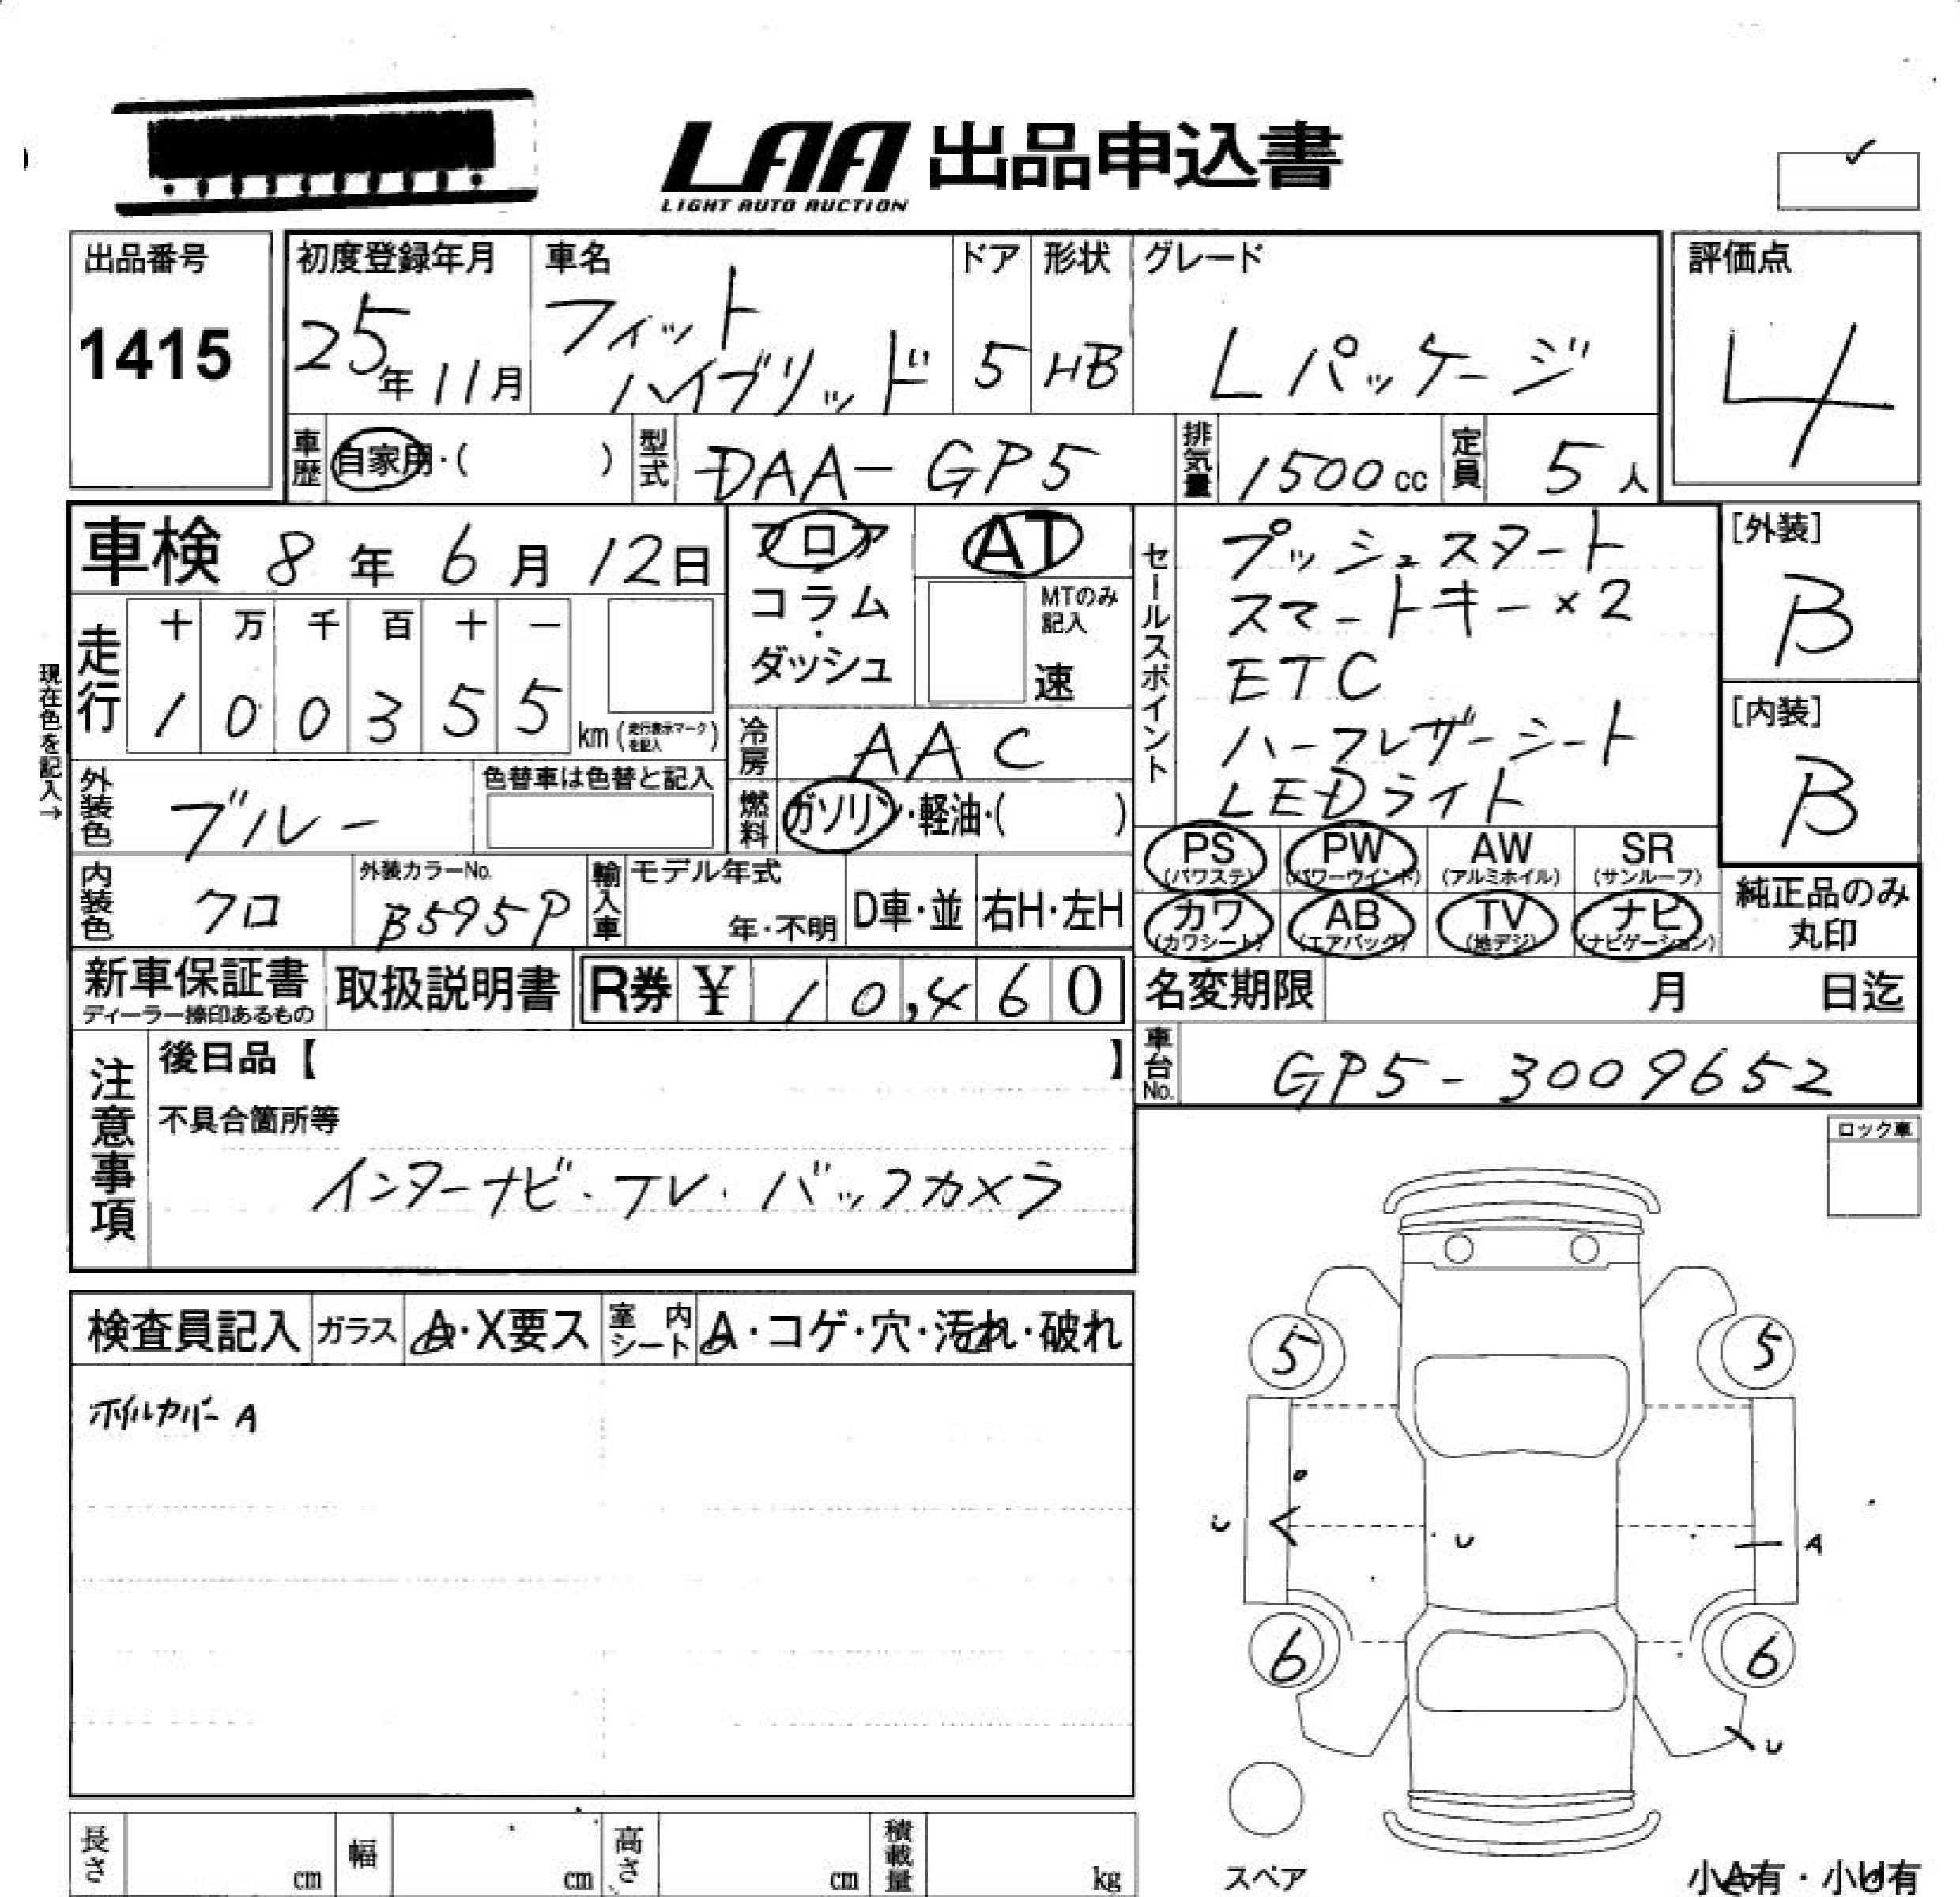 LAA 出品申込書
LIGHT AUTO AUCTION
出品番号
1415
初度登録年月
25年11月
車名
フィット
ハイブリッド
ドア
5
形状
HB
グレード
Lパッケージ
評価点
4
車歴 自家用・( )
型式 DAA-GP5
排気量 1500cc
定員 5人
車検 8年6月12日
現在色を記入→
走行
十 万 千 百 十 一
1 0 0 3 5 5 km(走行表示マークを記入)
外装色 ブルー
色替車は色替と記入
内装色 クロ
外装カラーNo.
B595P
輸入車 モデル年式
年・不明 D車・並 右H・左H
フロア
・
コラム
・
ダッシュ
AT
MTのみ
記入
速
冷房 AAC
燃料 ガソリン・軽油・( )
セールスポイント
プッシュスタート
スマートキー×2
ETC
ハーフレザーシート
LEDライト
[外装]
B
[内装]
B
PS (パワステ) PW (パワーウインド) AW (アルミホイル) SR (サンルーフ)
カワ (カワシート) AB (エアバッグ) TV (地デジ) ナビ (ナビゲーション)
純正品のみ
丸印
新車保証書
ディーラー捺印あるもの
取扱説明書
R券 ¥ 10,460
名変期限 月 日迄
車台No. GP5-3009652
注意事項
後日品【 】
不具合箇所等
インターナビ・TV・バックカメラ
ロック車
検査員記入 ガラス A・X要ス 室内シート A・コゲ・穴・汚れ・破れ
ホイルカバー A
5 5
C U A
6 6
U
スペア
小A有・小U有
長さ cm 幅 cm 高さ cm 積載量 kg